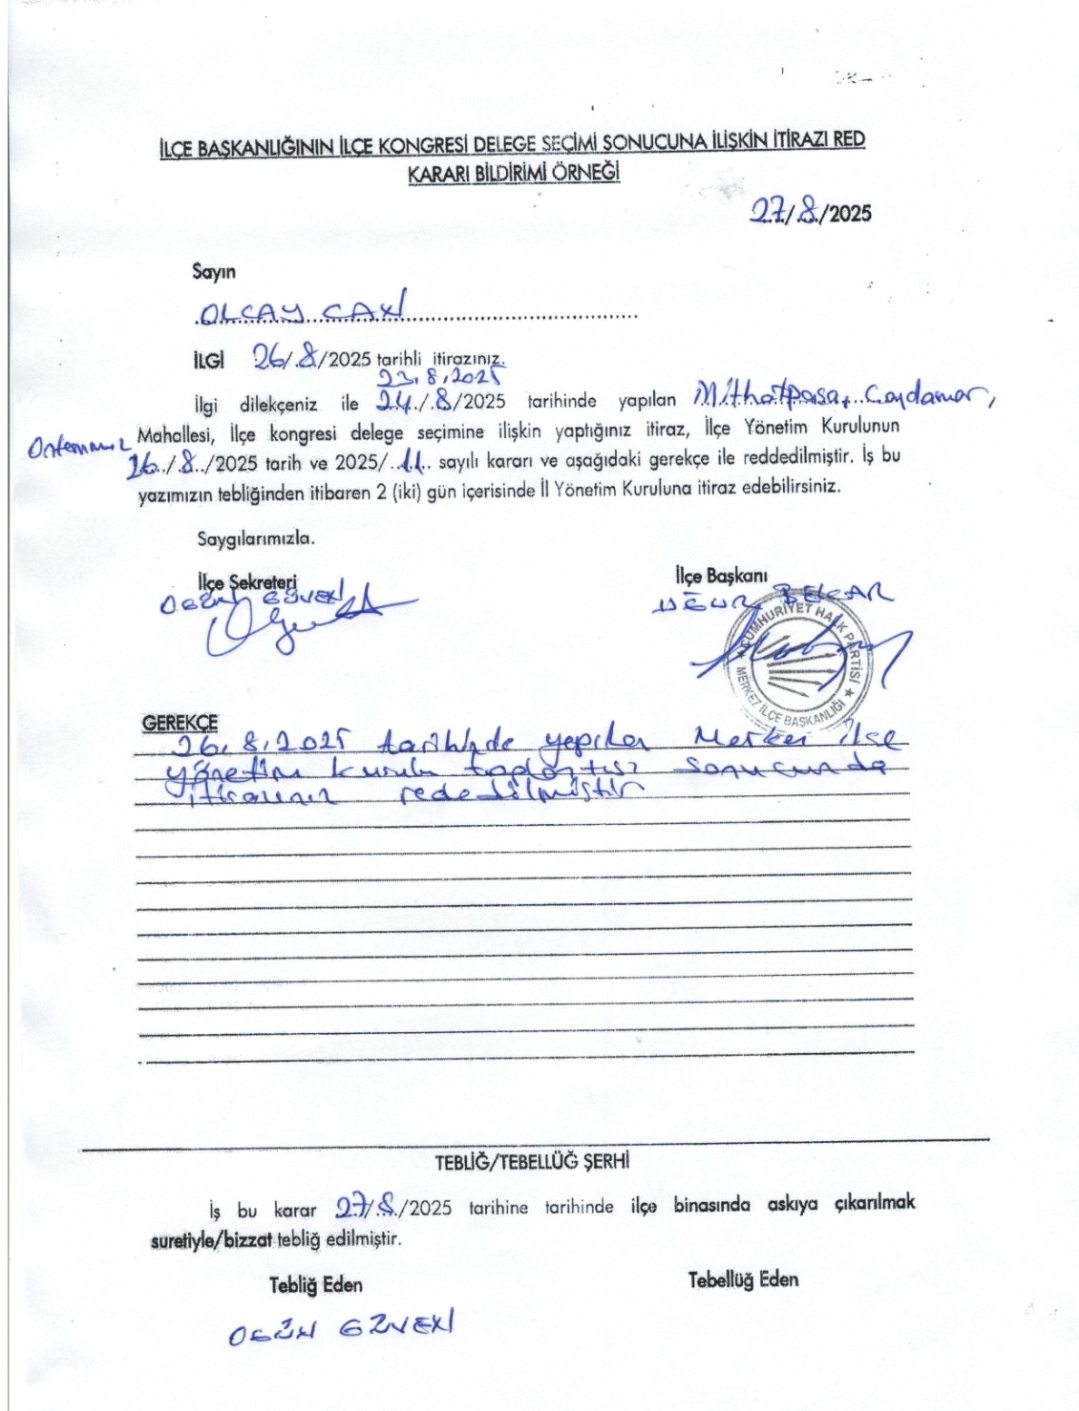 İLÇE BAŞKANLIĞININ İLÇE KONGRESİ DELEGE SEÇİMİ SONUCUNA İLİŞKİN İTİRAZI RED
KARARI BİLDİRİMİ ÖRNEĞİ
27/8/2025
Sayın
OLCAY CAN
İLGİ 26/8/2025 tarihli itirazınız.
23.8.2025
İlgi dilekçeniz ile 24/8/2025 tarihinde yapılan Mithatpaşa, Caydamar,
Ontemmuz Mahallesi, İlçe kongresi delege seçimine ilişkin yaptığınız itiraz, İlçe Yönetim Kurulunun
26/8/2025 tarih ve 2025/11 sayılı kararı ve aşağıdaki gerekçe ile reddedilmiştir. İş bu
yazımızın tebliğinden itibaren 2 (iki) gün içerisinde İl Yönetim Kuruluna itiraz edebilirsiniz.
Saygılarımızla.
İlçe Sekreteri İlçe Başkanı
OGÜN GÜVEN UĞUR
CUMHURİYET HALK PARTİSİ
MERKEZ İLÇE BAŞKANLIĞI
GEREKÇE
26.8.2025 tarihinde yapılan Merkez ilçe
yönetim kurulu toplantısı sonucunda
itirazınız rededilmiştir
TEBLİĞ/TEBELLÜĞ ŞERHİ
İş bu karar 27/8/2025 tarihine tarihinde ilçe binasında askıya çıkarılmak
suretiyle/bizzat tebliğ edilmiştir.
Tebliğ Eden Tebellüğ Eden
OGÜN GÜVEN